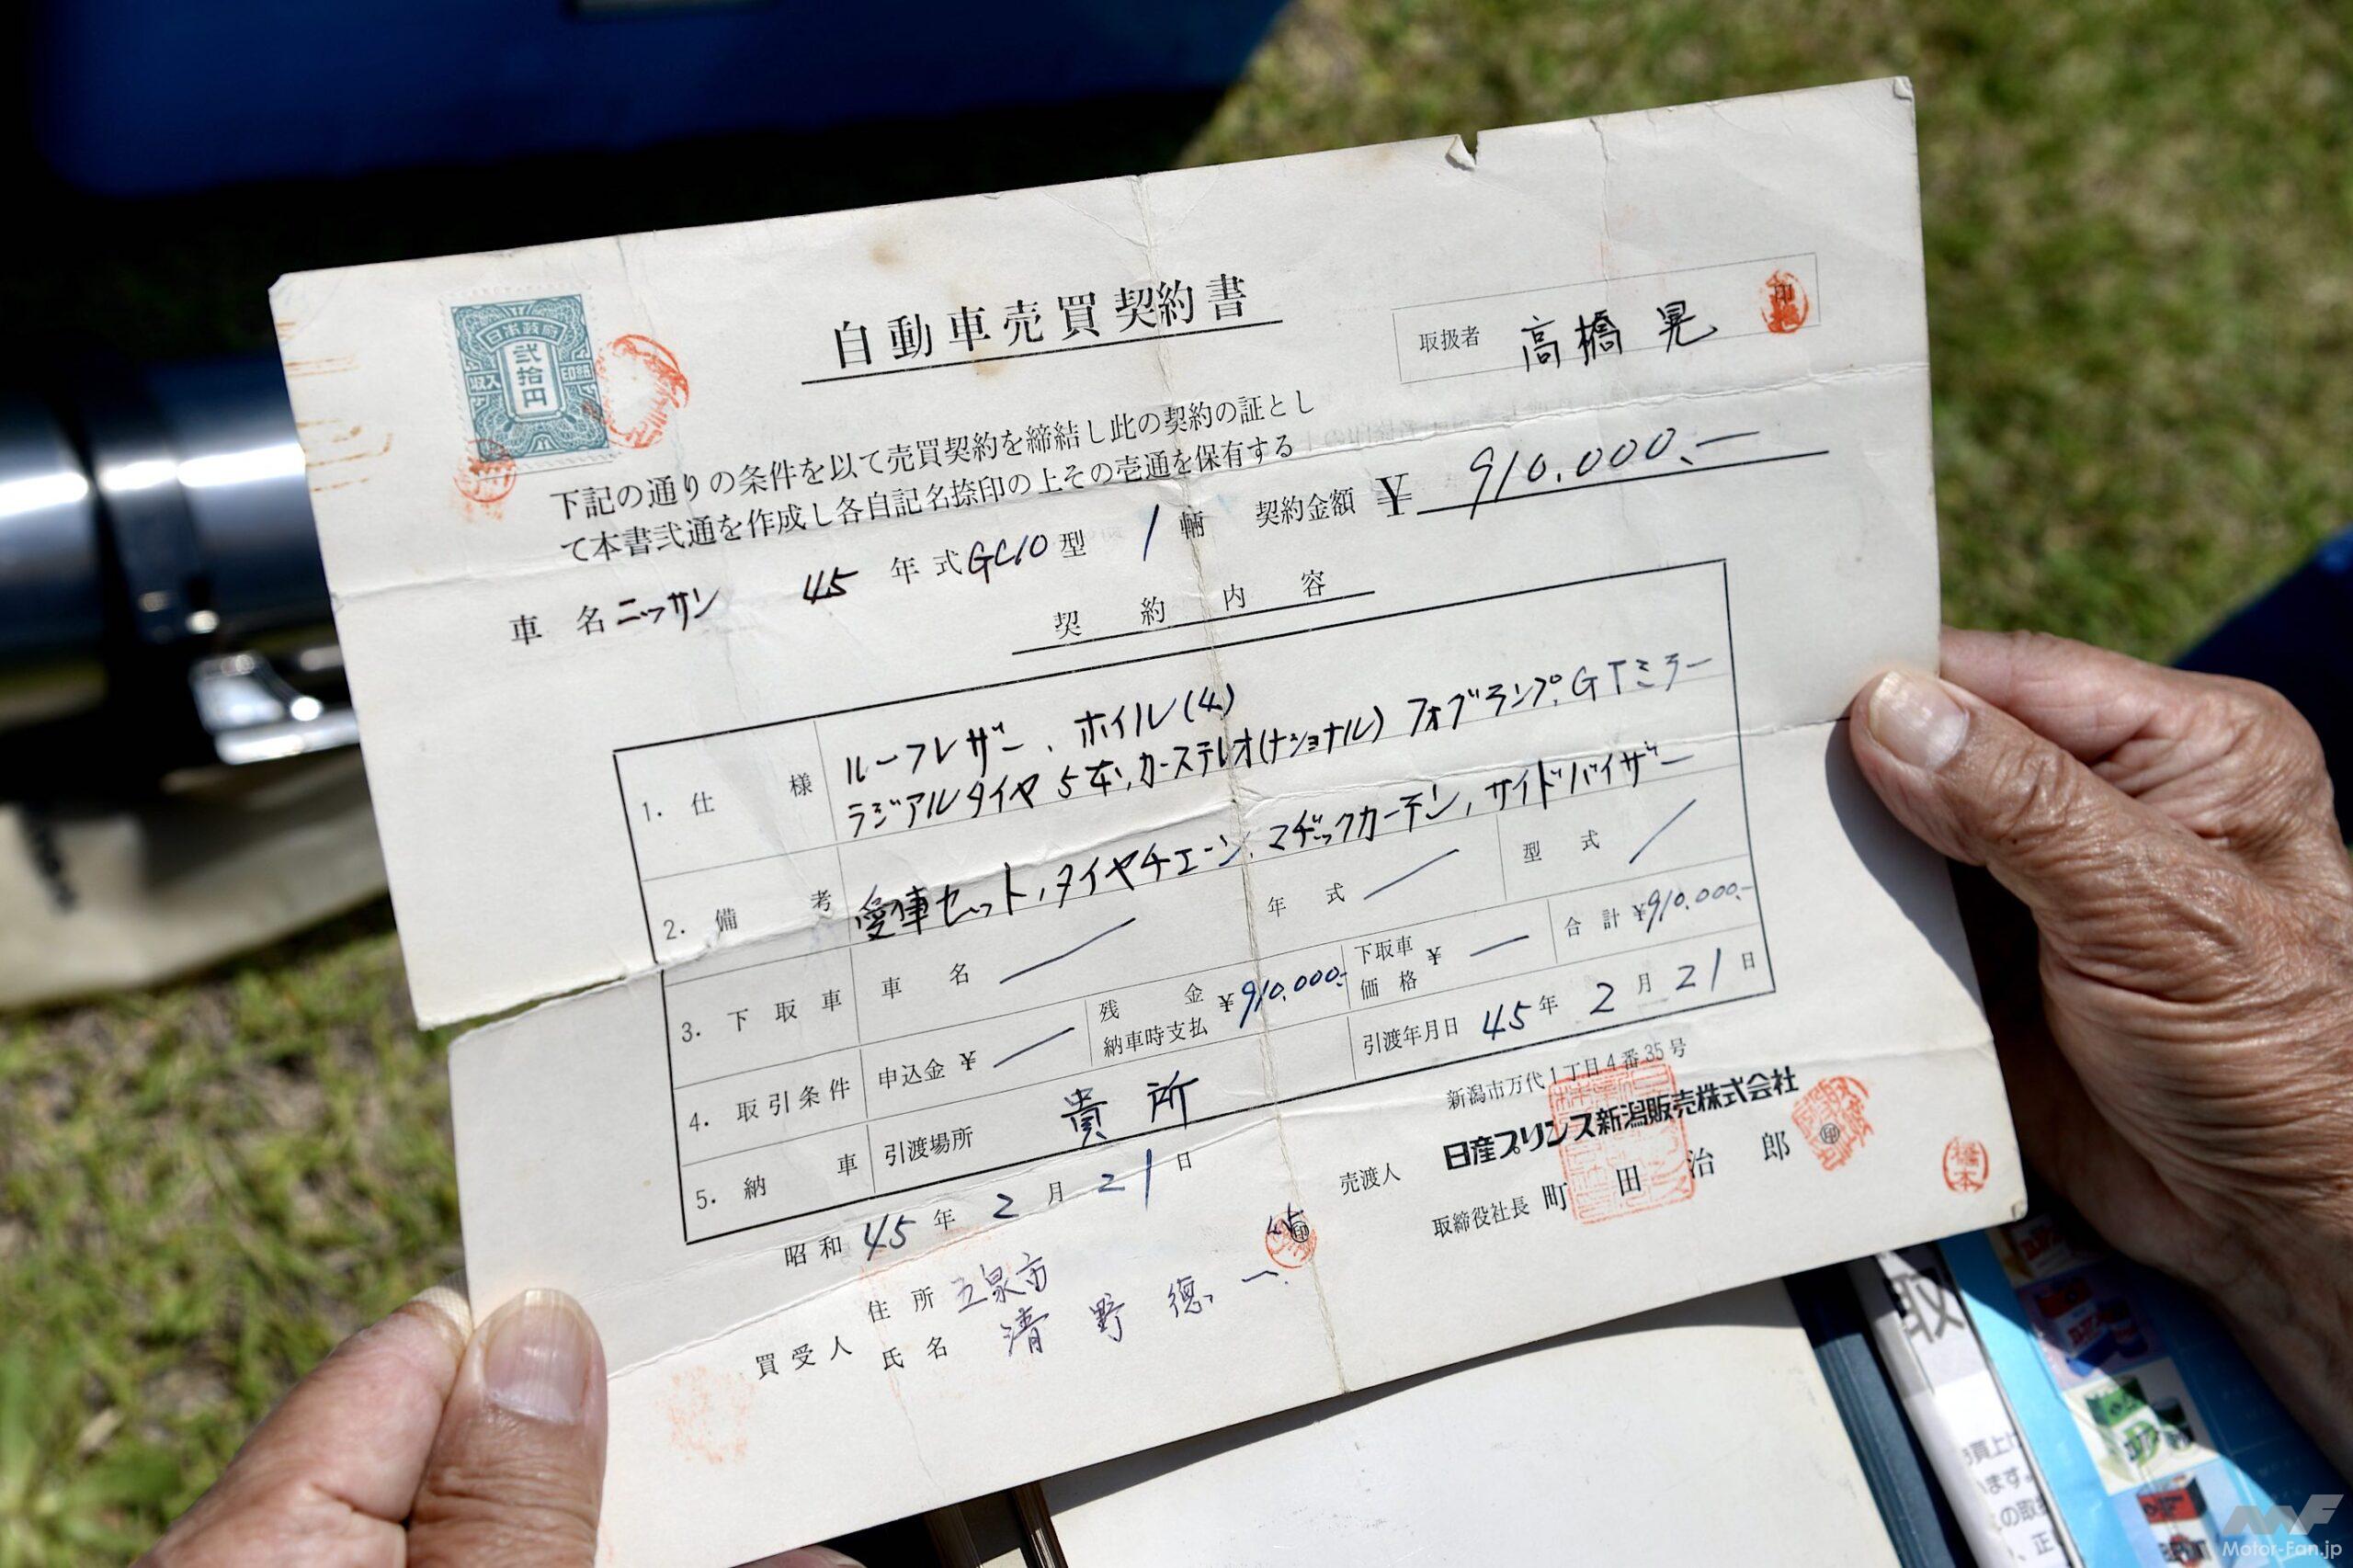 自動車売買契約書
取扱者 高橋 晃 印
日本政府
収入 弐拾円 印紙
下記の通りの条件を以て売買契約を締結し此の契約の証とし
て本書弐通を作成し各自記名捺印の上その壱通を保有する
車名 ニッサン 45 年式 GC10 型 1 輛 契約金額 ¥ 910.000.ー
契約内容
1. 仕様 ルーフレザー、ホイル(4)
ラジアルタイヤ5本、カーステレオ(ナショナル) フォグランプ、GTミラー
2. 備考 愛車セット、タイヤチェーン、マヂックカーテン、サイドバイザー
3. 下取車 車名 年式 型式
4. 取引条件 申込金 ¥ 残金 納車時支払 ¥910.000.- 下取車価格 ¥ 合計 ¥910.000.-
5. 納車 引渡場所 貴所 引渡年月日 45年 2月 21日
昭和 45年 2月 21日
新潟市万代1丁目4番35号
売渡人 日産プリンス新潟販売株式会社
取締役社長 町田治郎 印
橋本
買受人 住所 五泉市
氏名 清野徳一 印
取
Motor-Fan.jp